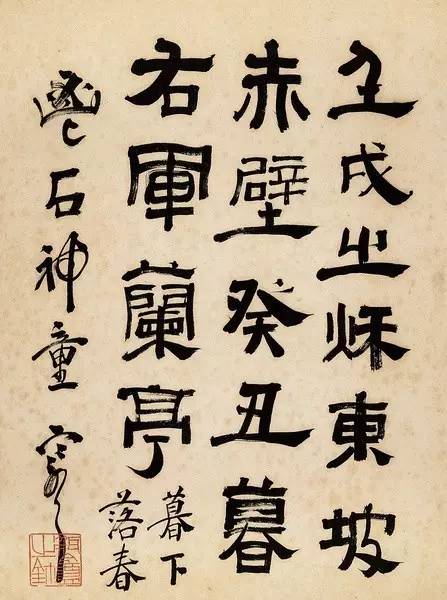 壬戌之秌東坡
赤壁癸丑暮
右軍蘭亭
暮下
落春
石神童